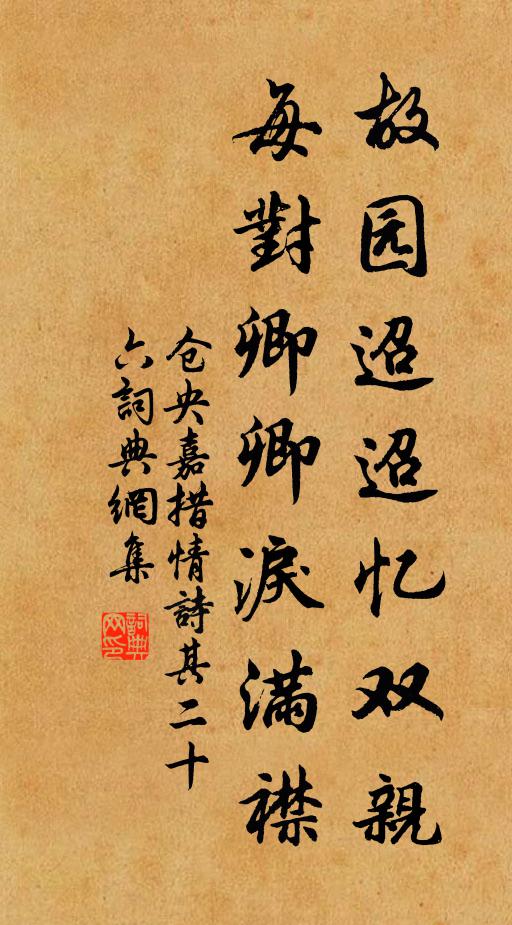 故园迢迢忆双親
每對卿卿淚滿襟
仓央嘉措情詩其二十
六詞典網集
詞典
网印